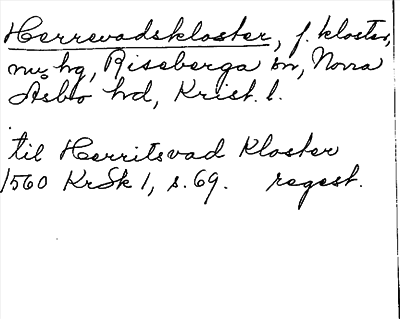 Herrevadskloster, f. kloster,
nu hg, Riseberga sn, Norra
Åsbo hd, Krist. l.
til Herritsvad Kloster
1560 KrSk 1, s. 69. regest.